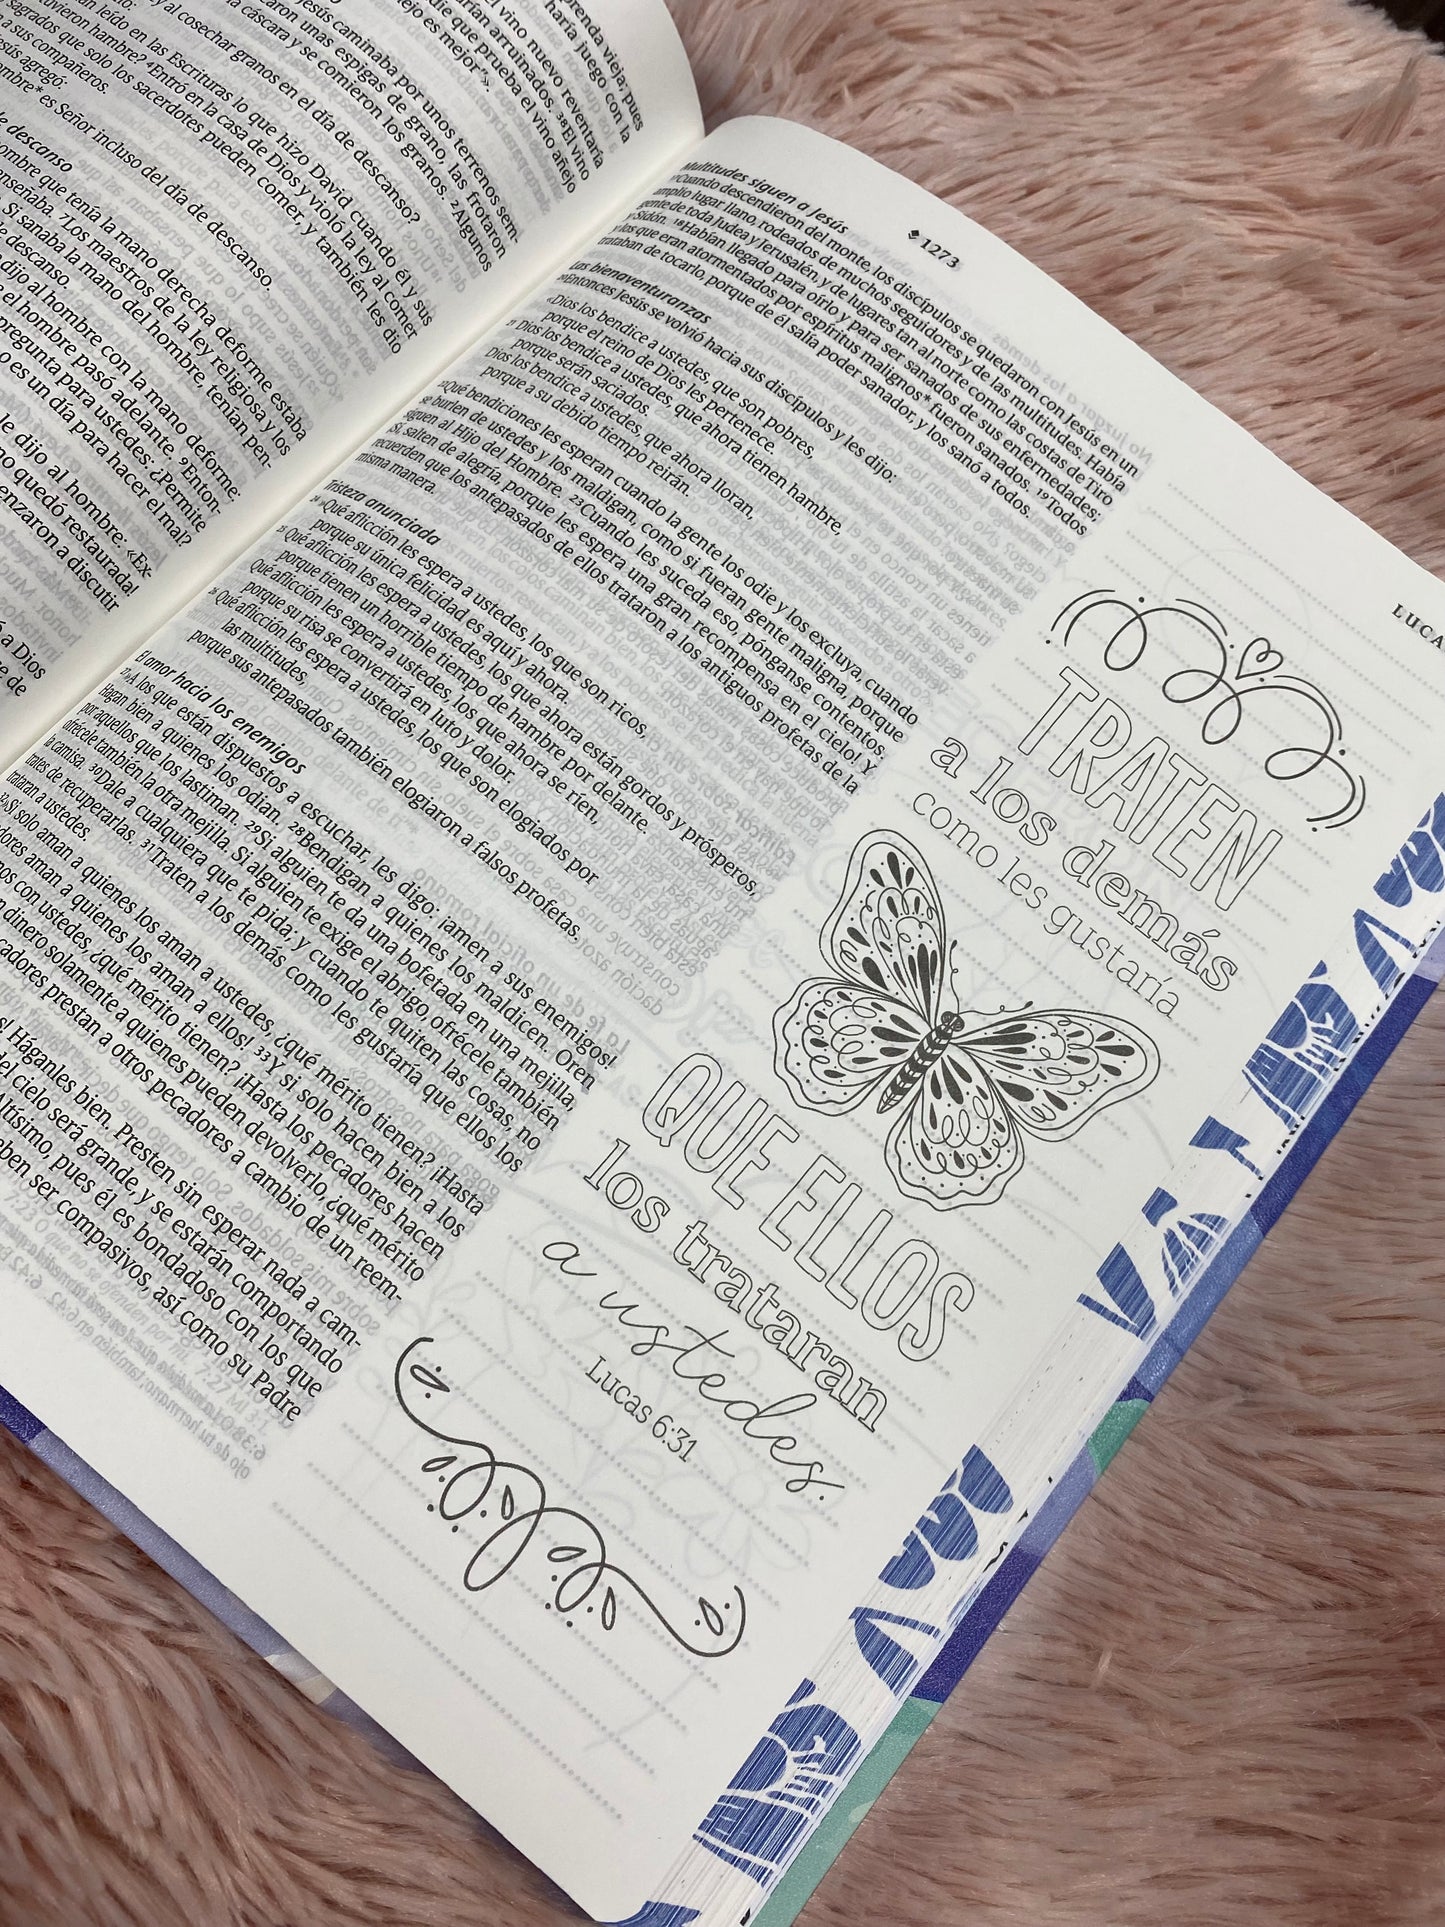 prenda vieja; pues
haría juego con la
l vino nuevo reventaría
rían arruinados. ³⁸El vino
die que prueba el vino añejo
ejo es mejor"».
Jesús caminaba por unos terrenos sem-
caron unas espigas de grano, las frotaron
a cáscara y se comieron los granos. ²Algunos
y al cosechar granos en el día de descanso?
n leído en las Escrituras lo que hizo David cuando él y sus
uvieron hambre? ⁴Entró en la casa de Dios y violó la ley al comer
sagrados que solo los sacerdotes pueden comer, y también les dio
a sus compañeros.
esús agregó:
ombre* es Señor incluso del día de descanso.
de descanso
hombre que tenía la mano derecha deforme estaba
enseñaba. ⁷Los maestros de la ley religiosa y los
Si sanaba la mano del hombre, tenían pen-
de descanso.
dijo al hombre con la mano deforme:
e el hombre pasó adelante. ⁹Enton-
pregunta para ustedes: ¿Permite
o es un día para hacer el mal?
le dijo al hombre: «Ex-
no quedó restaurada!
enzaron a discutir
ó a Dios
e de
◆ 1273
LUCA
Multitudes siguen a Jesús
¹⁷Cuando descendieron del monte, los discípulos se quedaron con Jesús en un
amplio lugar llano, rodeados de muchos seguidores y de las multitudes. Había
gente de toda Judea y Jerusalén, y de lugares tan al norte como las costas de Tiro
y Sidón. ¹⁸Habían llegado para oírlo y para ser sanados de sus enfermedades;
y los que eran atormentados por espíritus malignos* fueron sanados. ¹⁹Todos
trataban de tocarlo, porque de él salía poder sanador, y los sanó a todos.
Las bienaventuranzas
²⁰Entonces Jesús se volvió hacia sus discípulos y les dijo:
«Dios los bendice a ustedes, que son pobres,
porque el reino de Dios les pertenece.
²¹ Dios los bendice a ustedes, que ahora tienen hambre,
porque serán saciados.
Dios los bendice a ustedes, que ahora lloran,
porque a su debido tiempo reirán.
²²¡Qué bendiciones les esperan cuando la gente los odie y los excluya, cuando
se burlen de ustedes y los maldigan, como si fueran gente maligna, porque
siguen al Hijo del Hombre. ²³Cuando les suceda eso, pónganse contentos.
¡Sí, salten de alegría, porque les espera una gran recompensa en el cielo! Y
recuerden que los antepasados de ellos trataron a los antiguos profetas de la
misma manera.
Tristeza anunciada
²⁴ »Qué aflicción les espera a ustedes, los que son ricos,
porque su única felicidad es aquí y ahora.
²⁵ Qué aflicción les espera a ustedes, los que ahora están gordos y prósperos,
porque tienen un horrible tiempo de hambre por delante.
Qué aflicción les espera a ustedes, los que ahora se ríen,
porque su risa se convertirá en luto y dolor.
²⁶ Qué aflicción les espera a ustedes, los que son elogiados por
las multitudes,
porque sus antepasados también elogiaron a falsos profetas.
El amor hacia los enemigos
²⁷»A los que están dispuestos a escuchar, les digo: ¡amen a sus enemigos!
Hagan bien a quienes los odian. ²⁸Bendigan a quienes los maldicen. Oren
por aquellos que los lastiman. ²⁹Si alguien te da una bofetada en una mejilla,
ofrécele también la otra mejilla. Si alguien te exige el abrigo, ofrécele también
la camisa. ³⁰Dale a cualquiera que te pida; y cuando te quiten las cosas, no
trates de recuperarlas. ³¹Traten a los demás como les gustaría que ellos los
trataran a ustedes.
³²»Si solo aman a quienes los aman a ustedes, ¿qué mérito tienen? ¡Hasta
adores aman a quienes los aman a ellos! ³³Y si solo hacen bien a los
nos con ustedes, ¿qué mérito tienen? ¡Hasta los pecadores hacen
n dinero solamente a quienes pueden devolverlo, ¿qué mérito
cadores prestan a otros pecadores a cambio de un reem-
s! Háganles bien. Presten sin esperar nada a cam-
del cielo será grande, y se estarán comportando
Altísimo, pues él es bondadoso con los que
eben ser compasivos, así como su Padre
TRATEN
a los demás
como les gustaría
QUE ELLOS
los trataran
a ustedes.
Lucas 6:31